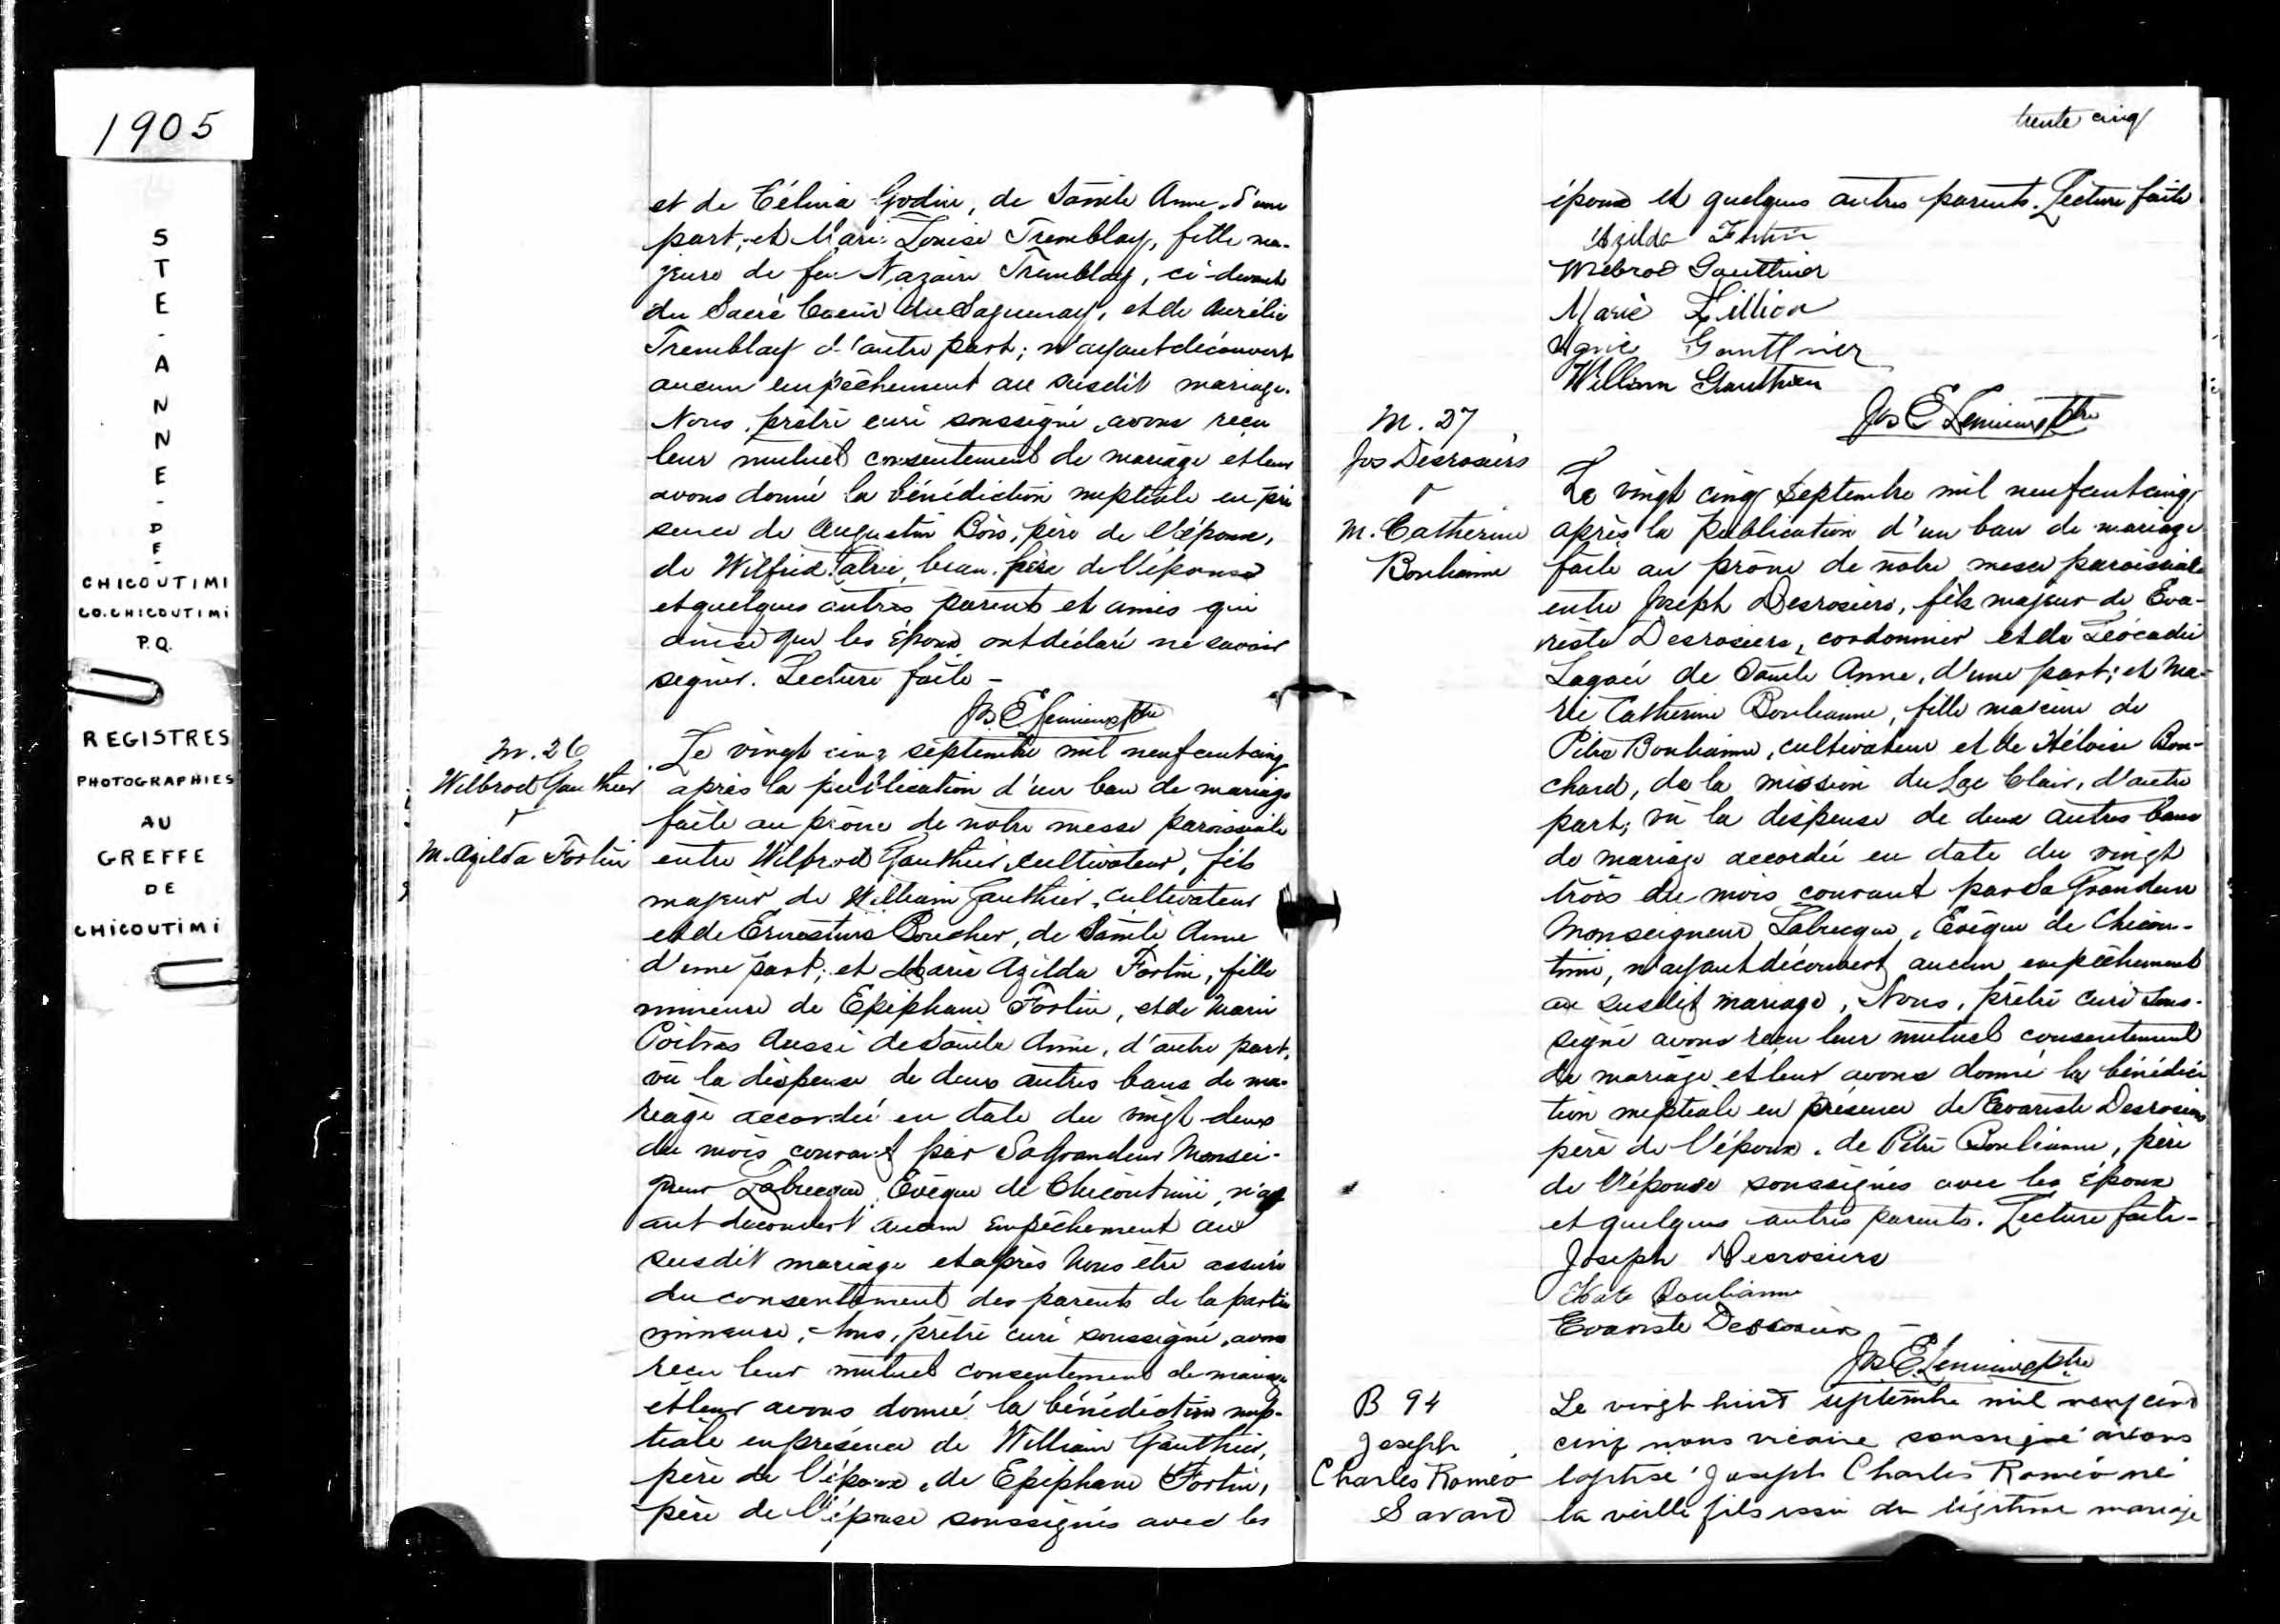 1905
STE-ANNE-DE-
CHICOUTIMI
CO. CHICOUTIMI
P.Q.
REGISTRES
PHOTOGRAPHIES
AU
GREFFE
DE
CHICOUTIMI
et de Célina Godin, de Sainte Anne, d'une
part; et Marie Louise Tremblay, fille ma-
jeure de feu Nazaire Tremblay, ci-devant
du Sacré Coeur du Saguenay, et de Aurélie
Tremblay d'autre part; n'ayant découvert
aucun empêchement au susdit mariage.
Nous, prêtre curé soussigné, avons reçu
leur mutuel consentement de mariage et leur
avons donné la bénédiction nuptiale en pré
sence de Augustin Bois, père de l'époux,
de Wilfrid beau-père de l'épouse
et quelques autres parents et amis qui
ainsi que les époux ont déclaré ne savoir
signer. Lecture faite -
Jos E Lemieux ptre
M. 26
Wilbrod Gauthier
&
M. Azilda Fortin
Le vingt cinq septembre mil neuf cent cinq
après la publication d'un ban de mariage
faite au prône de notre messe paroissiale
entre Wilbrod Gauthier, cultivateur, fils
majeur de William Gauthier, cultivateur
et de Ernestine Boucher, de Sainte Anne
d'une part; et Marie Azilda Fortin, fille
mineure de Epiphane Fortin, et de Marie
Poitras aussi de Sainte Anne, d'autre part,
vu la dispense de deux autres bans de ma-
riage accordée en date du vingt-deux
du mois courant par Sa Grandeur Monsei-
gneur Labrecque, Evêque de Chicoutimi, n'ay
ant découvert aucun empêchement au
susdit mariage et après Nous être assuré
du consentement des parents de la partie
mineure, Nous, prêtre curé soussigné, avons
reçu leur mutuel consentement de mariage
et leur avons donné la bénédiction nup-
tiale en présence de William Gauthier,
père de l'époux, de Epiphane Fortin,
père de l'épouse soussignés avec les
trente cinq
époux et quelques autres parents. Lecture faite
Azilda Fortin
Wilbrod Gauthier
Marie
Gauthier
William Gauthier
Jos E Lemieux Ptre
M. 27
Jos Desrosiers
&
M. Catherine
Boulianne
Le vingt cinq septembre mil neuf cent cinq
après la publication d'un ban de mariage
faite au prône de notre messe paroissiale
entre Joseph Desrosiers, fils majeur de Eva-
riste Desrosiers, cordonnier et de Léocadie
Lagacé de Sainte Anne, d'une part; et Ma-
rie Catherine Boulianne, fille majeure de
Pitre Boulianne, cultivateur et de Héloïse Bou-
chard, de la mission du Lac Clair, d'autre
part; vu la dispense de deux autres bans
de mariage accordée en date du vingt
trois du mois courant par Sa Grandeur
Monseigneur Labrecque, Evêque de Chicou-
timi, n'ayant découvert aucun empêchement
au susdit mariage, Nous, prêtre curé sous-
signé avons reçu leur mutuel consentement
de mariage et leur avons donné la bénédic
tion nuptiale en présence de Evariste Desrosiers
père de l'époux, de Pitre Boulianne, père
de l'épouse soussignés avec les époux
et quelques autres parents. Lecture faite-
Joseph Desrosiers
Boulianne
Evariste Desrosiers -
Jos E. Lemieux ptre
B 94
Joseph
Charles Roméo
Savard
Le vingt huit septembre mil neuf cent
cinq nous vicaire soussigné avons
baptisé Joseph Charles Roméo né
la veille fils issu du légitime mariage